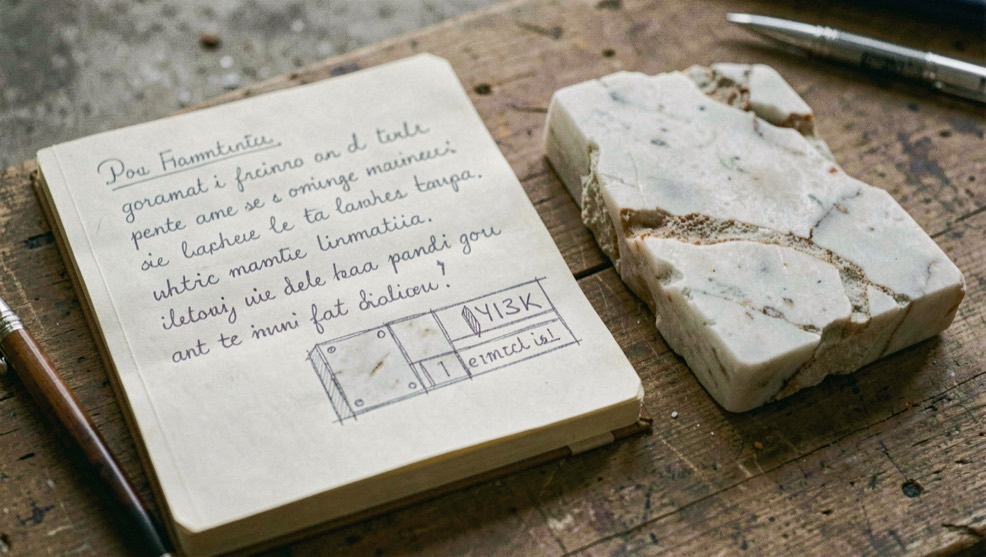 Pou Fiamntıntıı
goramat i frcinro an d tırlı
pente ame se s omınge maineci:
sie lacheue le ta lanhes taupa.
uhtic mamtie linmatiia.
iletoaij uie dele kaa pandi gou
ant te inıni fat dialicou!
YI3K
1 eimtcl is!